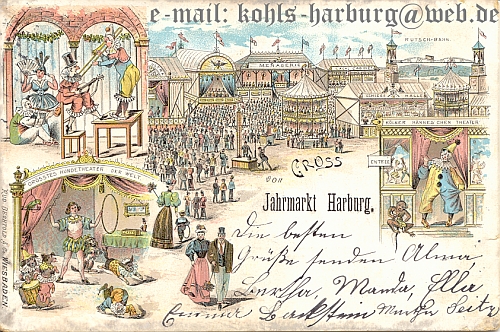 e-mail: kohls-harburg@web.de
RUTSCH-BAHN.
MENAGERIE
KÖLNER HÄNNESCHEN THEATER
ENTREE
GROSSTES HUNDETHEATER DER WELT
GRUSS
VOM
Jahrmarkt Harburg.
Die besten
Grüße senden Alwa
Bertha, Manda, Ella
Emma Backstein Martha Seitz
WIESBADEN